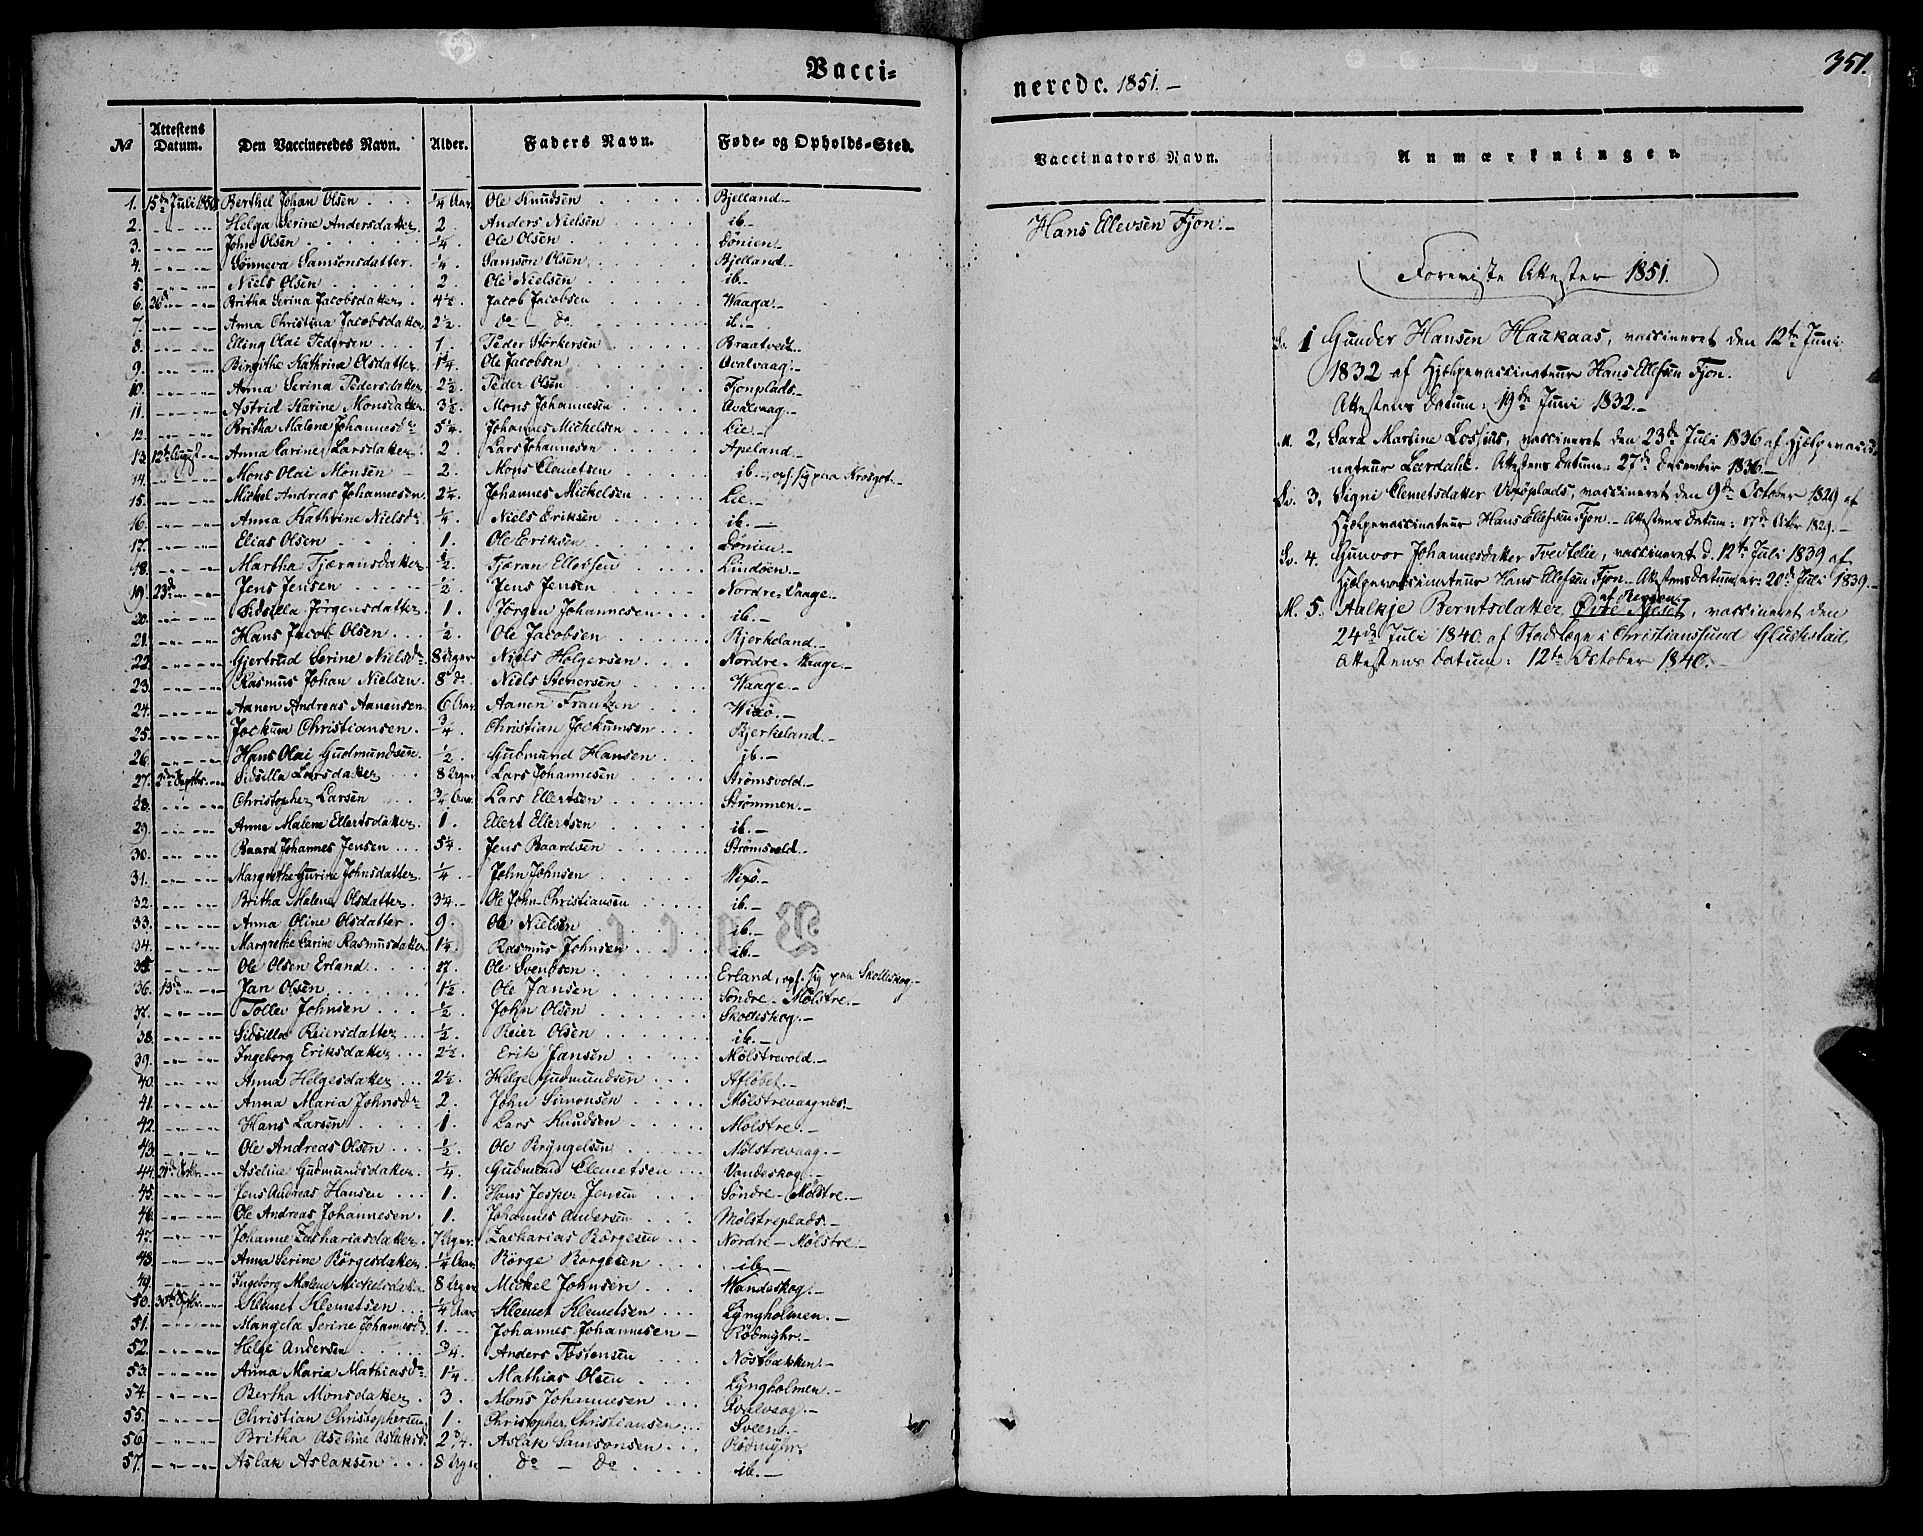 Vacci=
No Attestens Datum. Den Vaccineredes Navn. Alder. Faders Navn. Føde= og Opholds=Sted.
1. 15de Juli 1850 Berthel Johan Olsen ¼ Aar. Ole Knudsen Bjelland.-
2. Helga Serine Andersdatter. 2. Anders Nielsen ib.-
3. John Olsen ¼. Ole Olsen Dönien.-
4. Sönneva Samsonsdatter. ¼. Samson Olsen Bjelland.-
5. Niels Olsen 2. Ole Nielsen ib.-
6. 26de Britha Serina Jacobsdatter. 4½. Jacob Jacobsen Waaga.-
7. Anna Christina Jacobsdatter 2½. do - do ib.-
8. Elling Olai Pedersen 1. Peder Störkersen Braatvedt.-
9. Birgithe Kathrina Olsdatter 1¼. Ole Jacobsen Qvalvaag.-
10. Anna Serina Pedersdatter 2½. Peder Olsen Fjonplads.-
11. Astrid Karine Monsdatter 3½. Mons Johannesen Qvalvaag.-
12. Britha Malene Johannesdr 5¼. Johannes Michelsen Lie.-
13. 12te August Anna Carine Larsdatter. 2. Lars Johannesen Apeland.-
14. Mons Olai Monsen 2. Mons Clemetsen ib.-, oph. sig paa
15. Mickel Andreas Johannesen. 2¼. Johannes Mickelsen Lie.-
16. Anna Kathrine Nielsdr ¼. Niels Eriksen ib.-
17. Elias Olsen 1. Ole Eriksen Dönien.-
18. Martha Tjæransdatter ½. Tjæran Ellevsen Lindöen.-
19. 23de Jens Jensen ½. Jens Jensen Nordre-Vaage.-
20. Sidsilla Jörgensdatter 1. Jörgen Johannesen ib.-
21. Hans Jacob Olsen ½. Ole Jacobsen Bjerkeland.-
22. Gjertrud Serine Nielsdr 8 Uger Niels Holgersen Nordre-Waage.-
23. Rasmus Johan Nielsen. 8 do Niels Waage.-
24. Aanen Andreas Aanensen 6 Aar. Aanen Frantzen Wixö.-
25. Jockum Christiansen. ¾. Christian Jockumsen Bjerkeland.-
26. Hans Olai Gudmundsen. ½. Gudmund Hansen ib.-
27. 2den Septbr. Sidsilla Larsdatter 8 Uger Lars Johannesen Strømsvold.-
28. Christopher Larsen ¾ Aar. Lars Ellertsen Strømmen.-
29. Anne Malene Ellertsdatter. 1. Ellert Ellertsen ib.-
30. Baard Johannes Jensen 5¼. Jens Baardsen Strømsvold.-
31. Margrethe Gurine Johnsdatter. ¼. John Johnsen Wixö.-
32. Britha Malene Olsdatter 3¼.- Ole John Christiansen ib.-
33. Anna Oline Olsdatter. 9. Ole Nielsen ib.-
34. Margrethe Carine Rasmusdatter 1¼. Rasmus Johnsen ib.-
35. Ole Olsen Erland 17. Ole Svendsen Erland, oph. sig paa Skolleskog.-
36. 13de Jan Olsen 1½. Ole Jansen Söndre-Mölstre.-
37. Tollev Johnsen ½. John Olsen Skolleskog.-
38. Sidsille Reiersdatter ½. Reier Olsen ib.-
39. Ingeborg Eriksdatter 2½. Erik Jansen Mölstrevold.-
40. Anna Helgesdatter 2½. Helge Gudmundsen Aflöbet.-
41. Anna Maria Johnsdr 2. John Simonsen Mölstrevaagnes.-
42. Hans Larsen 1. Lars Knudsen Mölstre.-
43. Ole Andreas Olsen ½. Ole Bryngelsen Mölstrevaag.-
44. Aseline Gudmundsdatter ¼. Gudmund Clemetsen Vandeskog.-
45. Jens Andreas Hansen 1. Hans Jesper Jensen Söndre-Mölstre.-
46. Ole Andreas Johannesen. 1. Johannes Andersen Mölstreplads.-
47. Johanne Zachariasdatter. 7 Uger. Zacharias Börgesen Nordre-Mölstre.-
48. Anna Serine Börgesdatter ¼ Aar. Börge Börgesen ib.-
49. Ingeborg Malene Mickelsdatter 8 Uger Mickel Johnsen Wandeskog.-
50. 30te Septbr. Klemet Klemetsen ¼ Aar. Klemet Klemetsen Lyngholmen.-
51. Mangela Serine Johannesdr 1. Johannes Johannesen Rödmyhr.-
52. Helge Andersen ¾. Anders Tostensen Nöstbakken.-
53. Anna Maria Mathiasdr 1¼. Mathias Olsen Lyngholmen.-
54. Bertha Monsdatter 3. Mons Johannesen Qvalvaag.-
55. Christian Christophersen. 1. Christopher Christiansen Sveen.-
56. Britha Aseline Aslaksdr 2¾. Aslak Samsonsen Rödmyhr.
57. Aslak Aslaksen 8 Uger do - do ib.-
351.
nerede. 1851.-
Vaccinators Navn. Anmærkninger.
Hans Ellevsen Fjon.-
Foreviste Attester 1851.
Sv. 1 Gunder Hansen Haukaas, vaccineret den 12te Juni
1832 af Hjælpevaccinateur Hans Ellefsen Fjon.
Attestens Datum: 19de Juni 1832.-
M. 2, Sara Martine Lossius, vaccineret den 23de Juli 1836 af Hjælpevacci-
nateur Lærdahl. Attestens Datum: 27de December 1836.-
Sv. 3, Signi Clemetsdatter Vixöplads, vaccineret den 9de October 1829 af
Hjælpevaccinateur Hans Ellefsen Fjon.- Attestens Datum: 17de Octbr 1829.-
Sv. 4. Gunvor Johannesdatter Tveitelie, vaccineret d. 12te Juli 1839 af
Hjælpevaccinateur Hans Ellefsen Fjon.- Attestens Datum er: 20de Juli 1839.-
af Bergen
M. 5. Aalkje Berntsdatter Øvre , vaccineret den
24de Juli 1840 af Stadslæge i Christianssund Gluckstad.
Attestens Datum: 12te October 1840.-